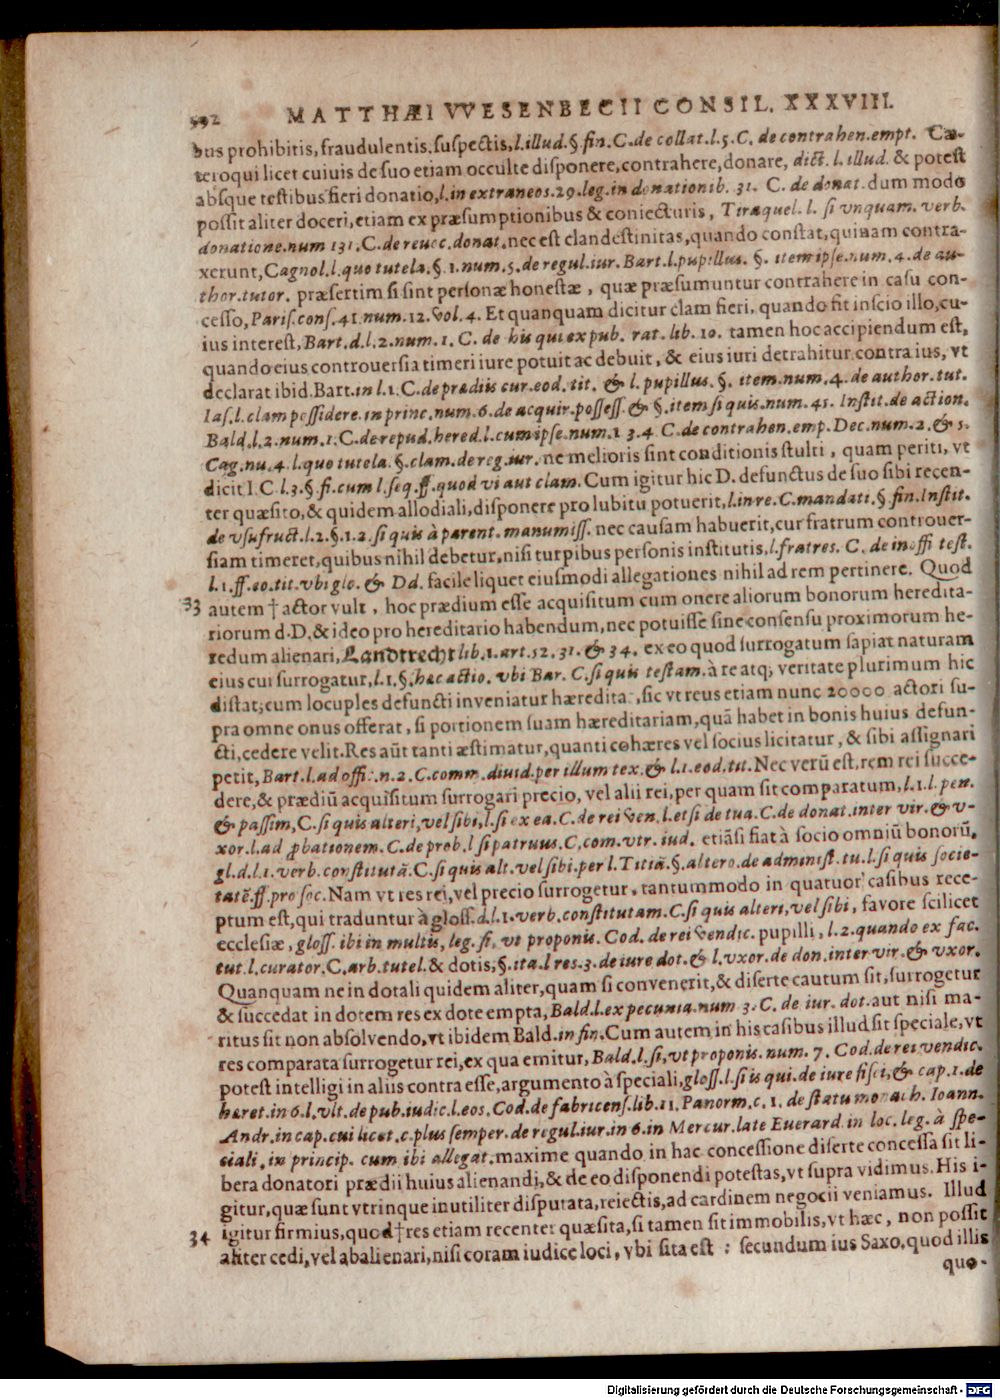 592 MATTHÆI VVESENBECII CONSIL. XXXVIII.
bus prohibitis, fraudulentis, suspectis, l. illud. §. fin. C. de collat. l. 5. C. de contrahen. empt. Cæ-
teroqui licet cuiuis de suo etiam occulte disponere, contrahere, donare, dict. l. illud. & potest
absque testibus fieri donatio, l. in extraneos. 29. leg. in donationib. 31. C. de donat. dum modo
possit aliter doceri, etiam ex præsumptionibus & coniecturis, Tiraquel. l. si vnquam. verb.
donatione. num 131. C. de reuoc. donat. nec est clandestinitas, quando constat, quinam contra-
xerunt, Cagnol. l. quo tutela. §. 1. num. 5. de regul. iur. Bart. l. pupillus. §. item ipse. num. 4. de au-
thor. tutor. præsertim si sint personæ honestæ, quæ præsumuntur contrahere in casu con-
cesso, Paris. cons. 41. num. 12. vol. 4. Et quanquam dicitur clam fieri, quando fit inscio illo, cu-
ius interest, Bart. d. l. 2. num. 1. C. de his qui ex pub. rat. lib. 10. tamen hoc accipiendum est,
quando eius controuersia timeri iure potuit ac debuit, & eius iuri detrahitur contra ius, vt
declarat ibid. Bart. in l. 1. C. de prædiis cur. eod. tit. & l. pupillus. §. item. num. 4. de author. tut.
Ias. l. clam possidere. in princ. num. 6. de acquir. possess. & §. item si quis. num. 41. Instit. de action.
Bald. l. 2. num. 1. C. de repud. hered. l. cum ipse. num. 1 3. 4 C. de contrahen. emp. Dec. num. 2. & 3.
Cag. nu. 4. l. quo tutela. §. clam. de reg. iur. ne melioris sint conditionis stulti, quam periti, vt
dicit I. C l. 3. §. fi. cum l. seq. ff. quod vi aut clam. Cum igitur hic D. defunctus de suo sibi recen-
ter quæsito, & quidem allodiali, disponere pro lubitu potuerit, l. in re. C. mandati. §. fin. Instit.
de vsufruct. l. 2. §. 1. 2. si quis à parent. manumiss. nec causam habuerit, cur fratrum controuer-
siam timeret, quibus nihil debetur, nisi turpibus personis institutis, l. fratres. C. de inoffi test.
l. 1. ff. eo. tit. vbi glo. & Dd. facile liquet eiusmodi allegationes nihil ad rem pertinere. Quod
33 autem † actor vult, hoc prædium esse acquisitum cum onere aliorum bonorum heredita-
riorum d. D. & ideo pro hereditario habendum, nec potuisse sine consensu proximorum he-
redum alienari, Landtrecht lib. 1. art. 52. 31. & 34. ex eo quod surrogatum sapiat naturam
eius cui surrogatur, l. 1. §. hac actio. vbi Bar. C. si quis testam. à re atq; veritate plurimum hic
distat, cum locuples defuncti inveniatur hæredita:, sic vt reus etiam nunc 20000 actori su-
pra omne onus offerat, si portionem suam hæreditariam, quã habet in bonis huius defun-
cti, cedere velit. Res aũt tanti æstimatur, quanti cohæres vel socius licitatur, & sibi assignari
petit, Bart. l. ad offi:. n. 2. C. comm. diuid. per illum tex. & l. 1. eod. tit. Nec verũ est, rem rei succe-
dere, & prædiũ acquisitum surrogari precio, vel alii rei, per quam sit comparatum, l. 1. l. pen.
& passim, C. si quis alteri, vel sibi, l. si ex ea. C. de rei ven. l. etsi de tua. C. de donat. inter vir. & v-
xor. l. ad ꝓbationem. C. de prob. l si patruus. C. com. vtr. iud. etiãsi fiat à socio omniũ bonorũ,
gl. d. l. 1. verb. constitutã. C. si quis alt. vel sibi. per l. Titiã. §. altero. de administ. tu. l. si quis socie-
tatẽ. ff. pro soc. Nam vt res rei, vel precio surrogetur, tantummodo in quatuor casibus rece-
ptum est, qui traduntur à gloss. d. l. 1. verb. constitutam. C. si quis alteri, vel sibi, favore scilicet
ecclesiæ, gloss. ibi in multis, leg. si, vt proponis. Cod. de rei vendic. pupilli, l. 2. quando ex fac.
tut. l. curator. C. arb. tutel. & dotis; §. ita. l res. 3. de iure dot. & l. vxor. de don. inter vir. & vxor.
Quanquam ne in dotali quidem aliter, quam si convenerit, & diserte cautum sit, surrogetur
& succedat in dotem res ex dote empta, Bald. l. ex pecunia. num 3. C. de iur. dot. aut nisi ma-
ritus sit non absolvendo, vt ibidem Bald. in fin. Cum autem in his casibus illud sit speciale, vt
res comparata surrogetur rei, ex qua emitur, Bald. l. si, vt proponis. num. 7. Cod. de rei vendic.
potest intelligi in aliis contra esse, argumento à speciali, gloss. l. si is qui. de iure fisci, & cap. 1. de
hæret. in 6. l. vlt. de pub. iudic. l. eos. Cod. de fabricens. lib. 11. Panorm. c. 1. de statu monach. Ioann.
Andr. in cap. cui licet. c. plus semper. de regul. iur. in 6. in Mercur. late Euerard. in loc. leg. à spe-
ciali. in princip. cum ibi allegat. maxime quando in hac concessione diserte concessa sit li-
bera donatori prædii huius alienandi, & de eo disponendi potestas, vt supra vidimus. His i-
gitur, quæ sunt vtrinque inutiliter disputata, reiectis, ad cardinem negocii veniamus. Illud
34 igitur firmius, quod † res etiam recenter quæsita, si tamen sit immobilis, vt hæc, non possit
aliter cedi, vel abalienari, nisi coram iudice loci, vbi sita est : secundum ius Saxo. quod illis
quo-
Digitalisierung gefördert durch die Deutsche Forschungsgemeinschaft - DFG